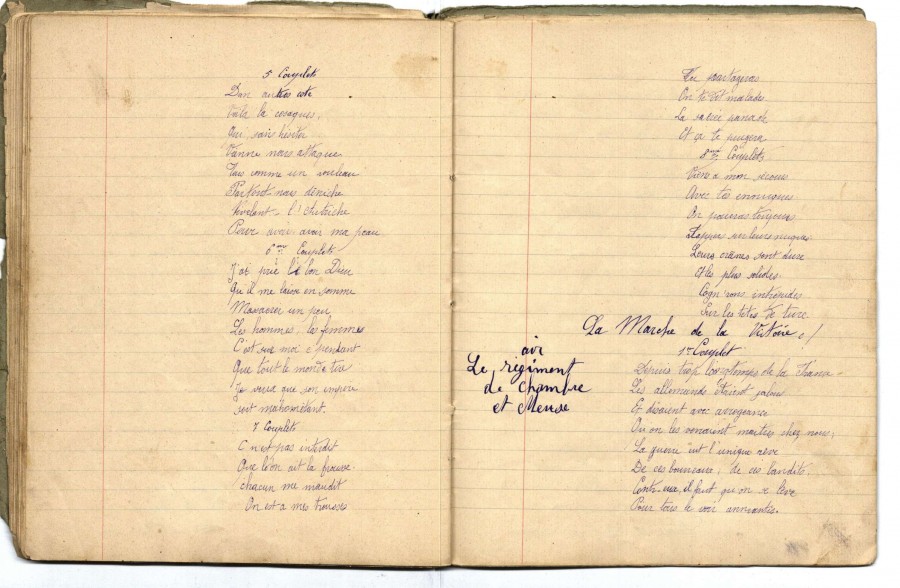 5 Couplets
Dun autres cote
Voila la cosaques,
Qui sans hésiter
Vanne nous attaque
Vais comme un rouleau
Partout nous déniche
l'Autriche
Pour avoir avoir ma peau
6me Couplets
J'ai prié le bon Dieu
Qu'il me laisse en somme
Massacrer un peu
Les hommes, les femmes
C'est sur moi c'pendant
Que tout le monde tire
Je veux que son empire
soit mahométant.
7 Couplets
C n'est pas interdit
Que l'on ait la frousse.
chacun me maudit
On est a mes trousses
Tu partageras
On te dit malade.
La sacrée panade
Et ça te purgera
8me Couplets
Viens a mon secours
Avec tes ennuques
On pourras toujours
Tapper sur leurs nuques.
Leurs crânes sont dure
Et les plus solides.
Cogn'rons intrépides
Sur les têtes de turc
La Marche de la Victoire !
air
Le régiment
de Chambre
et Meuse
1er Couplet
Depuis trop longtemps de la France
Les allemands étaient jaloux
Et disaient avec arrogeance
Qu'on les verraient maitres chez nous;
La guerre est l'unique reve
De ces bourreaux, de ces bandits.
Contr eux, il faut qu'on se lève
Pour tous le voir anniantis.